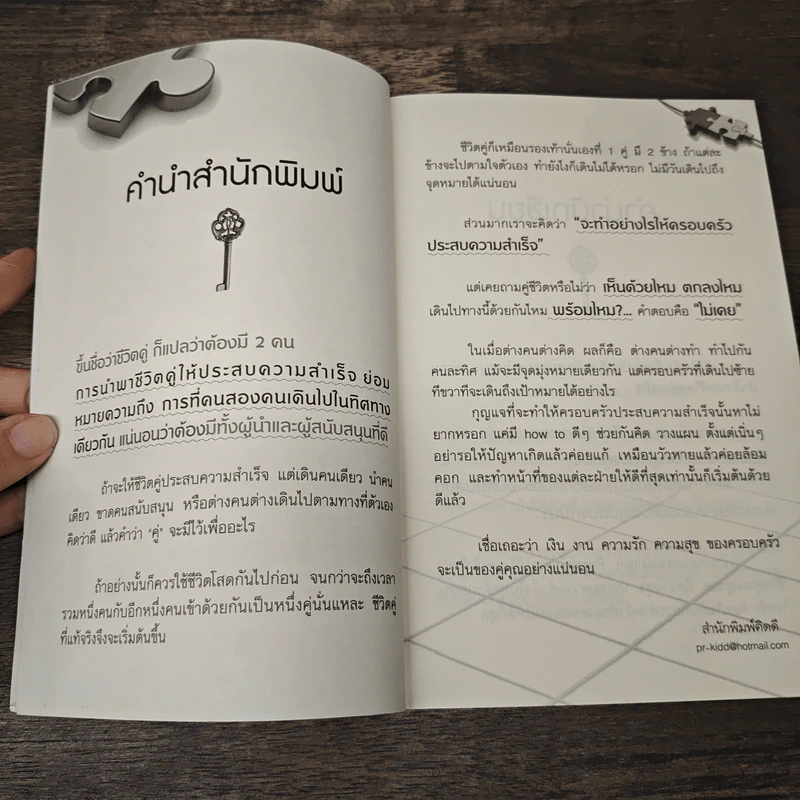 คำนำสำนักพิมพ์
ขึ้นชื่อว่าชีวิตคู่ ก็แปลว่าต้องมี 2 คน
การนำพาชีวิตคู่ให้ประสบความสำเร็จ ย่อม
หมายความถึง การที่คนสองคนเดินไปในทิศทาง
เดียวกัน แน่นอนว่าต้องมีทั้งผู้นำและผู้สนับสนุนที่ดี
ถ้าจะให้ชีวิตคู่ประสบความสำเร็จ แต่เดินคนเดียว นำคน
เดียว ขาดคนสนับสนุน หรือต่างคนต่างเดินไปตามทางที่ตัวเอง
คิดว่าดี แล้วคำว่า "คู่" จะมีไว้เพื่ออะไร
ถ้าอย่างนั้นก็ควรใช้ชีวิตโสดกันไปก่อน จนกว่าจะถึงเวลา
รวมหนึ่งคนกับอีกหนึ่งคนเข้าด้วยกันเป็นหนึ่งคู่นั่นแหละ ชีวิตคู่
ที่แท้จริงจึงจะเริ่มต้นขึ้น
ชีวิตคู่ก็เหมือนรองเท้านั่นเองที่ 1 คู่ มี 2 ข้าง ถ้าแต่ละ
ข้างจะไปตามใจตัวเอง ทำยังไงก็เดินไม่ได้หรอก ไม่มีวันเดินไปถึง
จุดหมายได้แน่นอน
ส่วนมากเราจะคิดว่า "จะทำอย่างไรให้ครอบครัว
ประสบความสำเร็จ"
แต่เคยถามคู่ชีวิตหรือไม่ว่า เห็นด้วยไหม ตกลงไหม
เดินไปทางนี้ด้วยกันไหม พร้อมไหม?... คำตอบคือ "ไม่เคย"
ในเมื่อต่างคนต่างคิด ผลก็คือ ต่างคนต่างทำ ทำไปกัน
คนละทิศ แม้จะมีจุดมุ่งหมายเดียวกัน แต่ครอบครัวที่เดินไปซ้าย
ทีขวาทีจะเดินถึงเป้าหมายได้อย่างไร
กุญแจที่จะทำให้ครอบครัวประสบความสำเร็จนั้นหาไม่
ยากหรอก แค่มี how to ดีๆ ช่วยกันคิด วางแผน ตั้งแต่เนิ่นๆ
อย่ารอให้ปัญหาเกิดแล้วค่อยแก้ เหมือนวัวหายแล้วค่อยล้อม
คอก และทำหน้าที่ของแต่ละฝ่ายให้ดีที่สุดเท่านั้นก็เริ่มต้นด้วย
ดีแล้ว
เชื่อเถอะว่า เงิน งาน ความรัก ความสุข ของครอบครัว
จะเป็นของคู่คุณอย่างแน่นอน
สำนักพิมพ์คิดดี
pr-kidd@hotmail.com